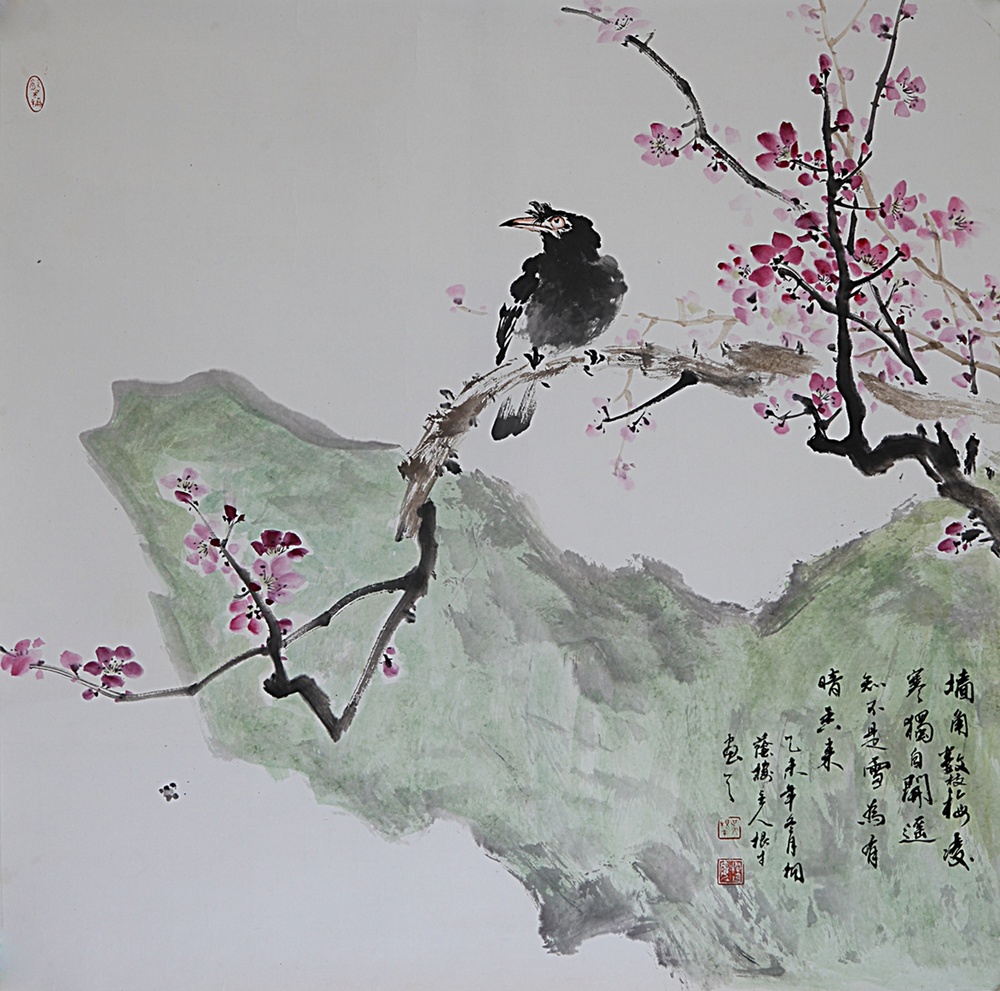 墙角數枝梅凌
寒獨自開遥
知不是雪為有
暗香来
乙未年冬月桐
蔭樓主人根才
畫之